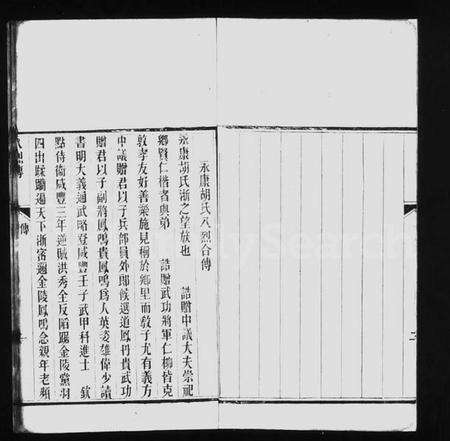 永康胡氏八烈合傳
永康胡氏浙之望族也 誥贈中議大夫崇祀
鄉賢仁楷者與弟 誥贈武功將軍仁楷皆克
敦孝友好善樂施見稱於鄉里而敎子尤有義方
中議贈君以子兵部員外郎候選道鳳丹貴武功
贈君以子副將鳳鳴貴鳳鳴爲人英姿雄偉少讀
書明大義通武略登咸豐壬子武甲科進士 欽
點侍衞咸豐三年逆賊洪秀全反陷踞金陵黨羽
四出蹂躪遍天下浙省逼金陵鳳鳴念親年老頻
傳